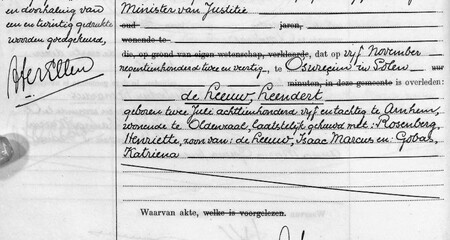 en doorhaling van
een en twintig gedrukte
woorden goedgekeurd,
Minister van Justitie
oud jaren,
wonende te
die, op grond van eigen wetenschap, verklaarde, dat op vyf November
negentienhonderd twee en veertig, te Oswiecim in Polen uur
minuten, in deze gemeente is overleden:
de Leeuw, Leendert
geboren twee Juli achttienhonderd vyf en tachtig te Arnhem,
wonende te Oldenzaal, laatstelijk gehuwd met: Rosenberg,
Henriette, zoon van: de Leeuw, Isaac Marcus en: Gobas,
Katriena
Waarvan akte, welke is voorgelezen.